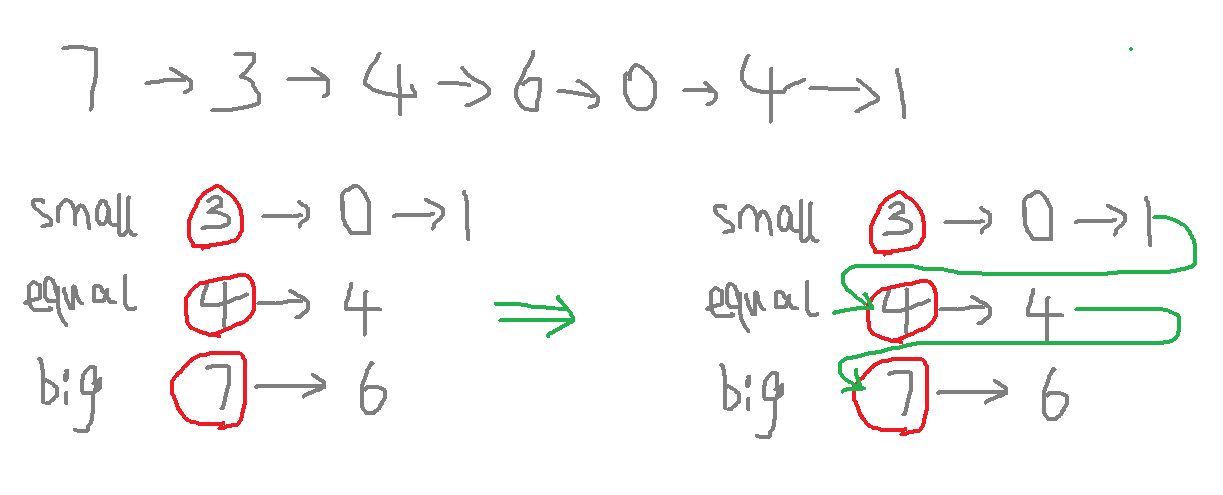 7 → 3 → 4 → 6 → 0 → 4 → 1
small 3 → 0 → 1
equal 4 → 4
big 7 → 6
⇒
small 3 → 0 → 1
equal 4 → 4
big 7 → 6